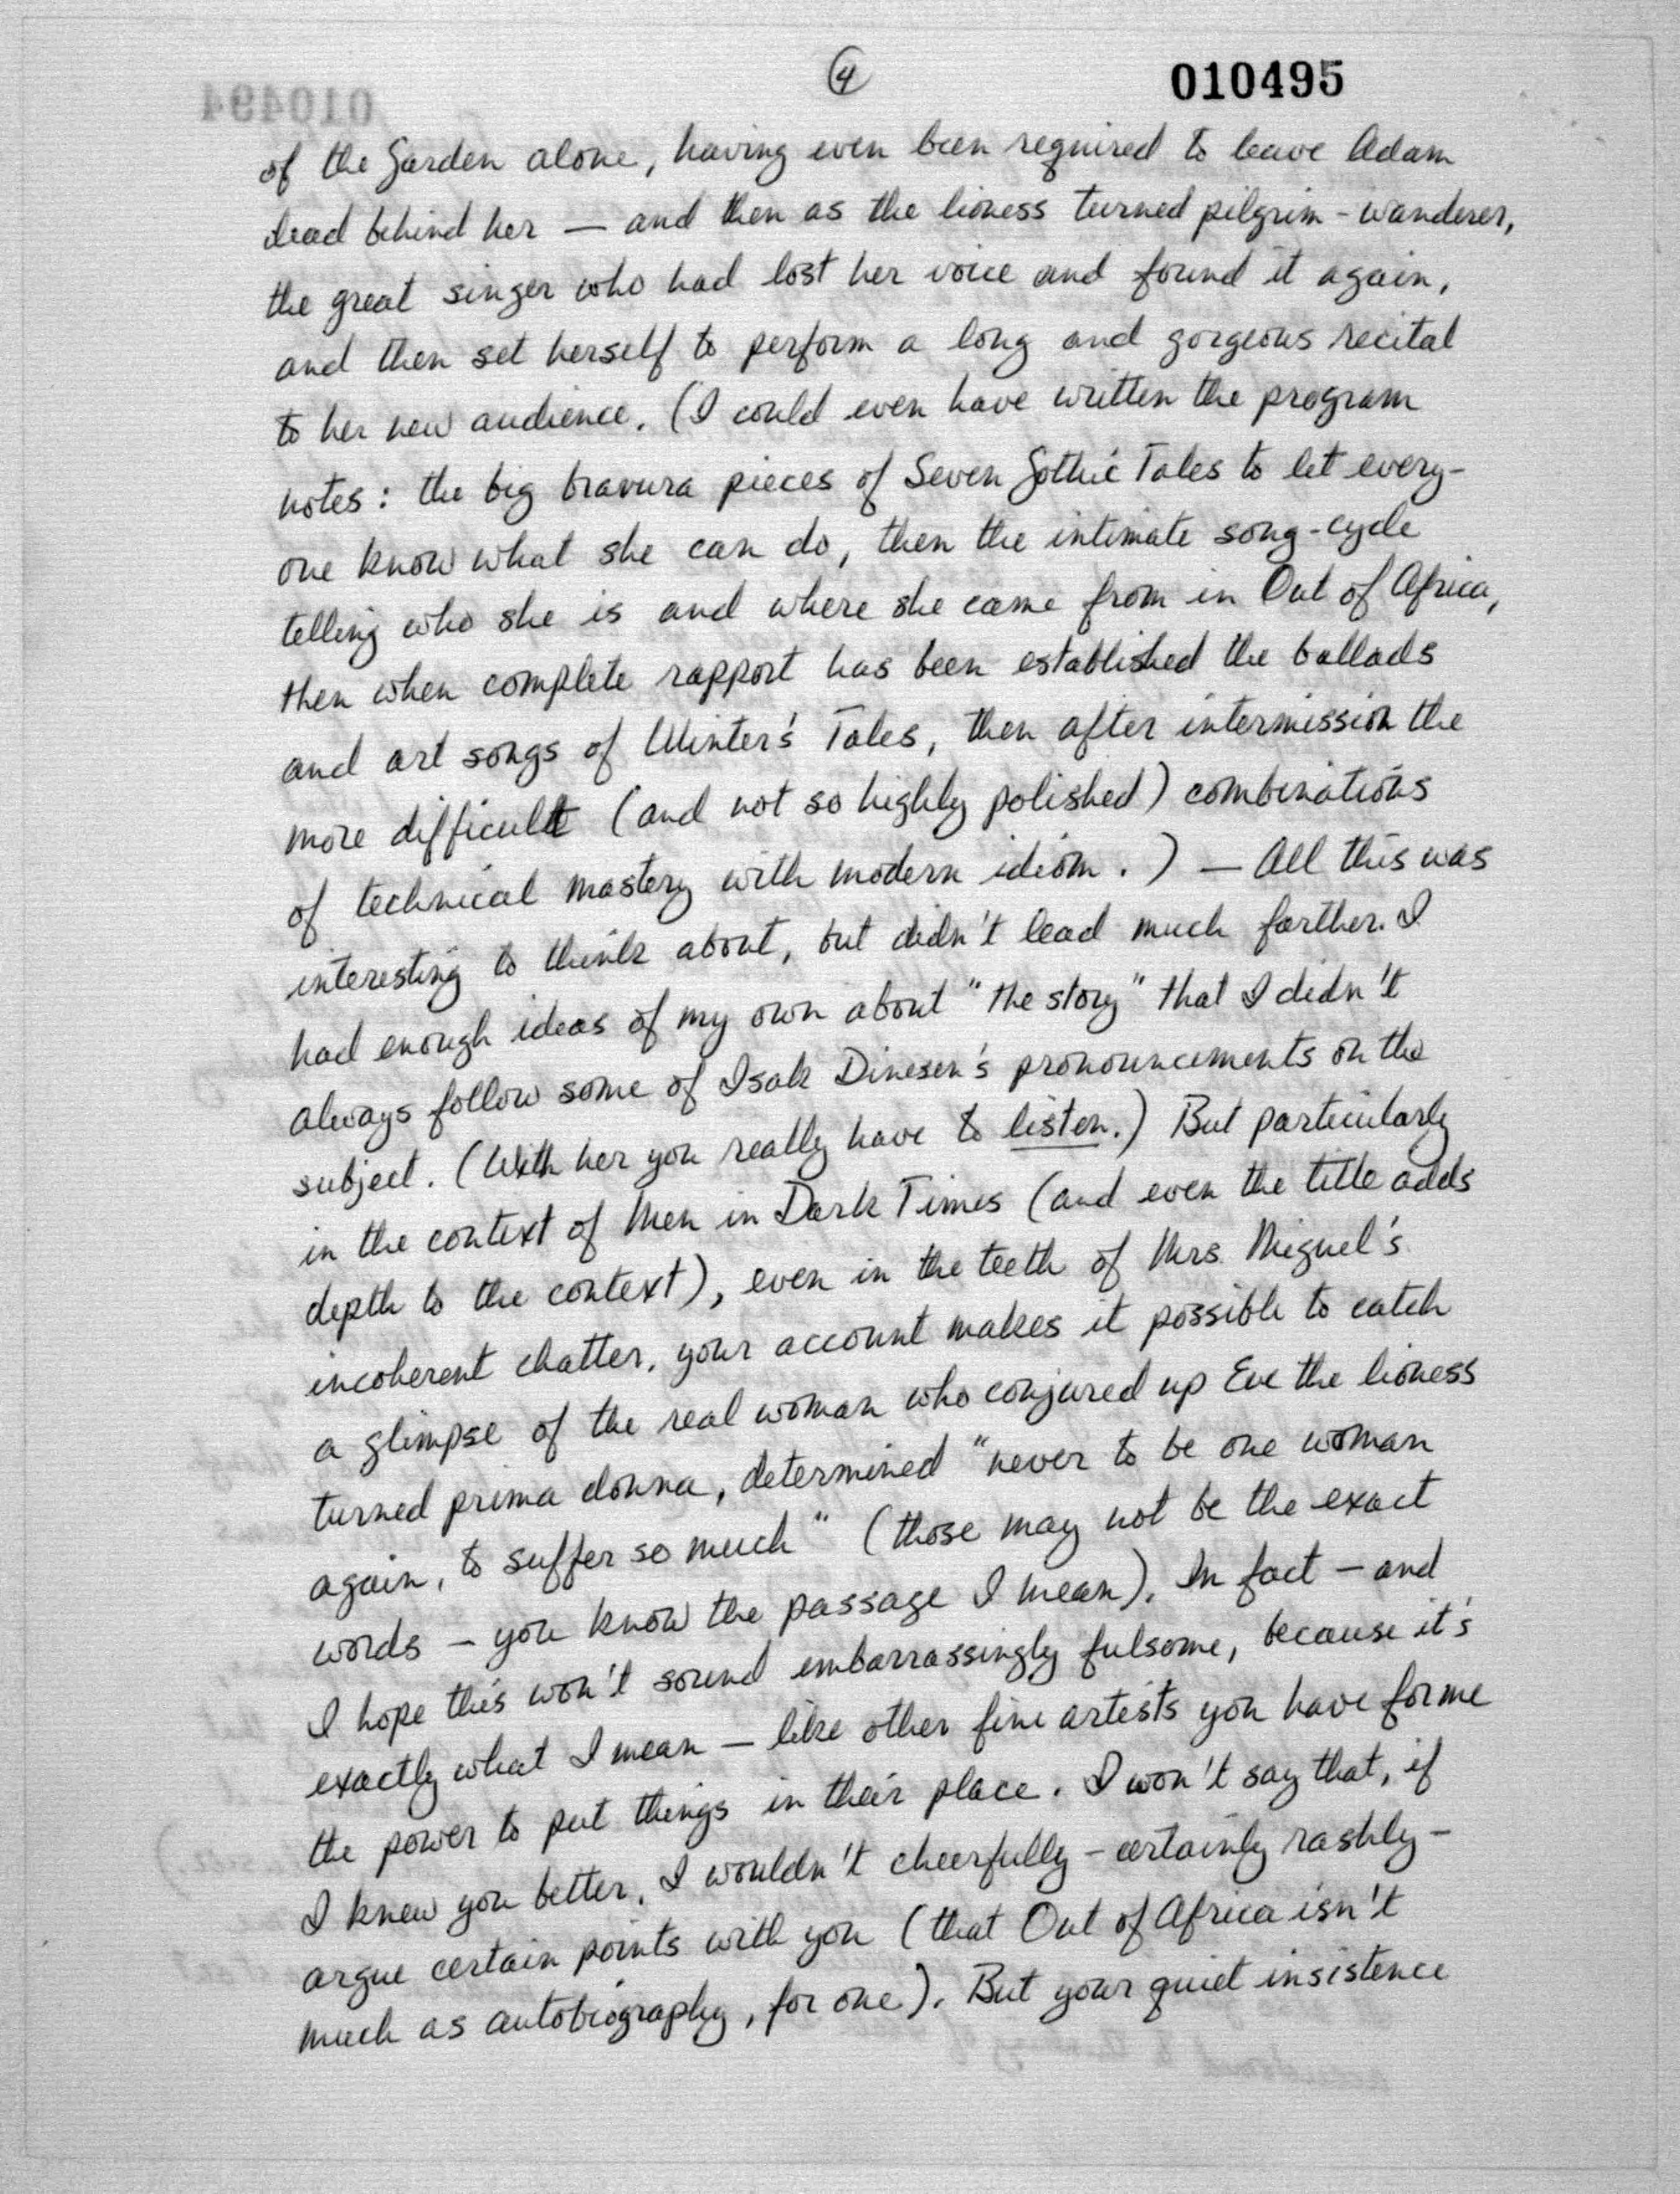 ④
010495
010494
of the Garden alone, having even been required to leave Adam
dead behind her — and then as the lioness turned pilgrim-wanderer,
the great singer who had lost her voice and found it again,
and then set herself to perform a long and gorgeous recital
to her new audience. (I could even have written the program
notes: the big bravura pieces of Seven Gothic Tales to let every-
one know what she can do, then the intimate song-cycle
telling who she is and where she came from in Out of Africa,
then when complete rapport has been established the ballads
and art songs of Winter's Tales, then after intermission the
more difficult (and not so highly polished) combinations
of technical mastery with modern idiom.) — All this was
interesting to think about, but didn't lead much farther. I
had enough ideas of my own about "the story" that I didn't
always follow some of Isak Dinesen's pronouncements on the
subject. (With her you really have to listen.) But particularly
in the context of Men in Dark Times (and even the title adds
depth to the context), even in the teeth of Mrs. Miguel's
incoherent chatter, your account makes it possible to catch
a glimpse of the real woman who conjured up Eve the lioness
turned prima donna, determined "never to be one woman
again, to suffer so much" (those may not be the exact
words – you know the passage I mean). In fact – and
I hope this won't sound embarrassingly fulsome, because it's
exactly what I mean — like other fine artists you have for me
the power to put things in their place. I won't say that, if
I knew you better, I wouldn't cheerfully – certainly rashly –
argue certain points with you (that Out of Africa isn't
much as autobiography, for one). But your quiet insistence